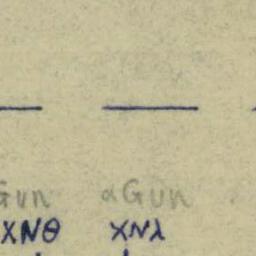 Gun αGun
XNθ XNλ